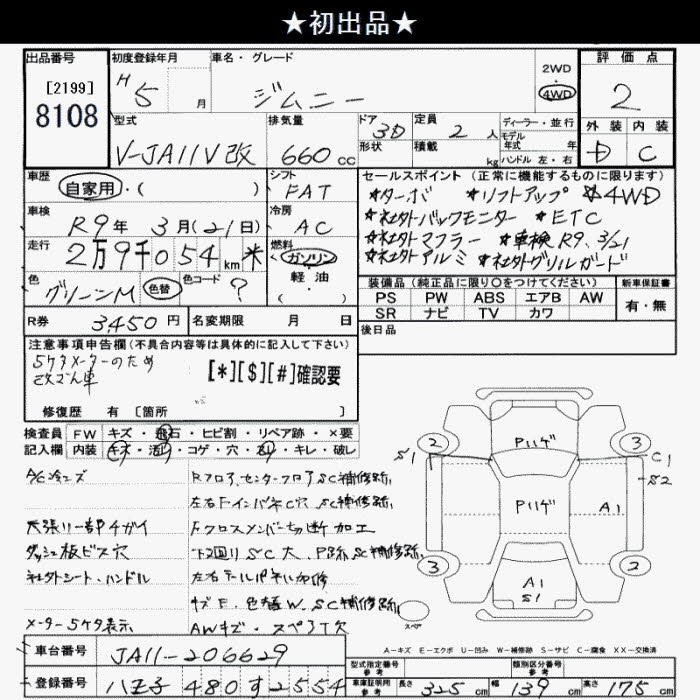 ★初出品★
出品番号
[2199]
8108
初度登録年月
H5 月
車名・グレード
ジムニー
2WD
・
4WD
評価点
2
外装 内装
D C
型式
V-JA11V改
排気量
660 cc
ドア 3D
形状
定員 2 人
積載 kg
ディーラー・並行
モデル
年式 年
ハンドル 左・右
車歴
自家用・( )
シフト
FAT
車検
R9年 3月(21日)
冷房
AC
走行
2万9千054 km *
燃料
ガソリン
軽油
・( )
色
グリーンM 色替
色コード
?
セールスポイント (正常に機能するものに限ります)
☆ターボ ★リフトアップ ☆4WD
☆社外バックモニター ★ETC
☆社外マフラー ★車検R9.3/21
☆社外アルミ ★社外グリルガード
装備品 (純正品に限り○をつけてください)
新車保証書
PS PW ABS エアB AW
SR ナビ TV カワ
有・無
R券 3,450円
名変期限 月 日
後日品
注意事項申告欄 (不具合内容等は具体的に記入して下さい)
5ケタメーターのため
改ざん車
[*][$][#]確認要
修復歴 有 [箇所 ]
検査員
記入欄
FW キズ・飛石・ヒビ割・リペア跡・×要
内装 キズ・汚れ・コゲ・穴・スリ・キレ・破レ
A/C冷エズ
天張リ一部チガイ
ダッシュ板ビス穴
社外シート、ハンドル
メーター5ケタ表示
Rフロア,センターフロアSC補修跡,
左右FインパネC穴SC補修跡,
Fクロスメンバー切断加工
下回りSC大、P跡,SC補修跡,
左右テールパネル加修
キズE、色替W、SC補修跡,
AWキズ・スペアT穴
2
3
3
2
S1
C1
S2
Pハゲ
Pハゲ
A1
A1
S1
スペア
A-キズ E-エクボ U-凹み W-補修跡 S-サビ C-腐食 XX-交換済
車台番号
JA11-206629
登録番号
八王子480す2554
型式指定番号
参考
類別区分番号
参考
車庫証明用
参考
長さ 325 cm
幅 139 cm
高さ 175 cm